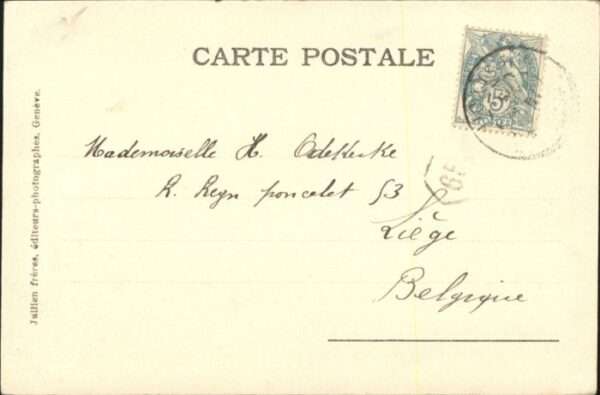 CARTE POSTALE
5
Mademoiselle H. Odekerke
R. Reyn poncelet 53
Liège
Belgique
Jullien frères, éditeurs-photographes, Genève.